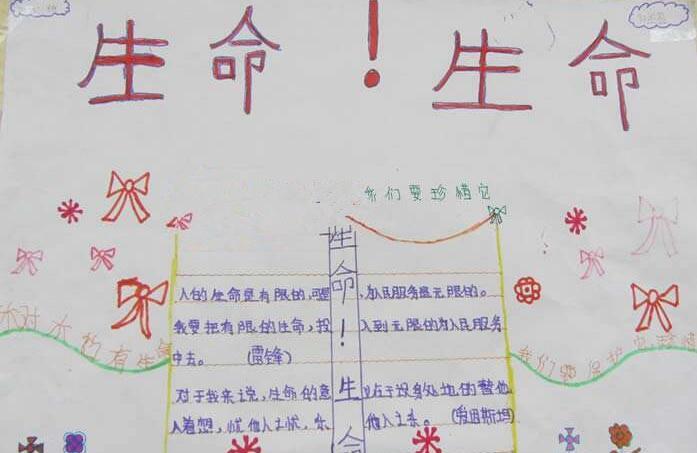 生命！生命
我们要珍惜它
生命！生命
人的生命是有限的,可是,为人民服务是无限的。
我要把有限的生命,投入到无限的为人民服务
中去。（雷锋）
对于我来说,生命的意义在于设身处地的替他
人着想,忧他人之忧,乐他人之乐。（爱因斯坦）
有生命
我们要保护它珍惜